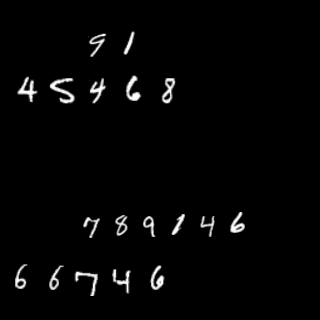 91
45468
789146
66746